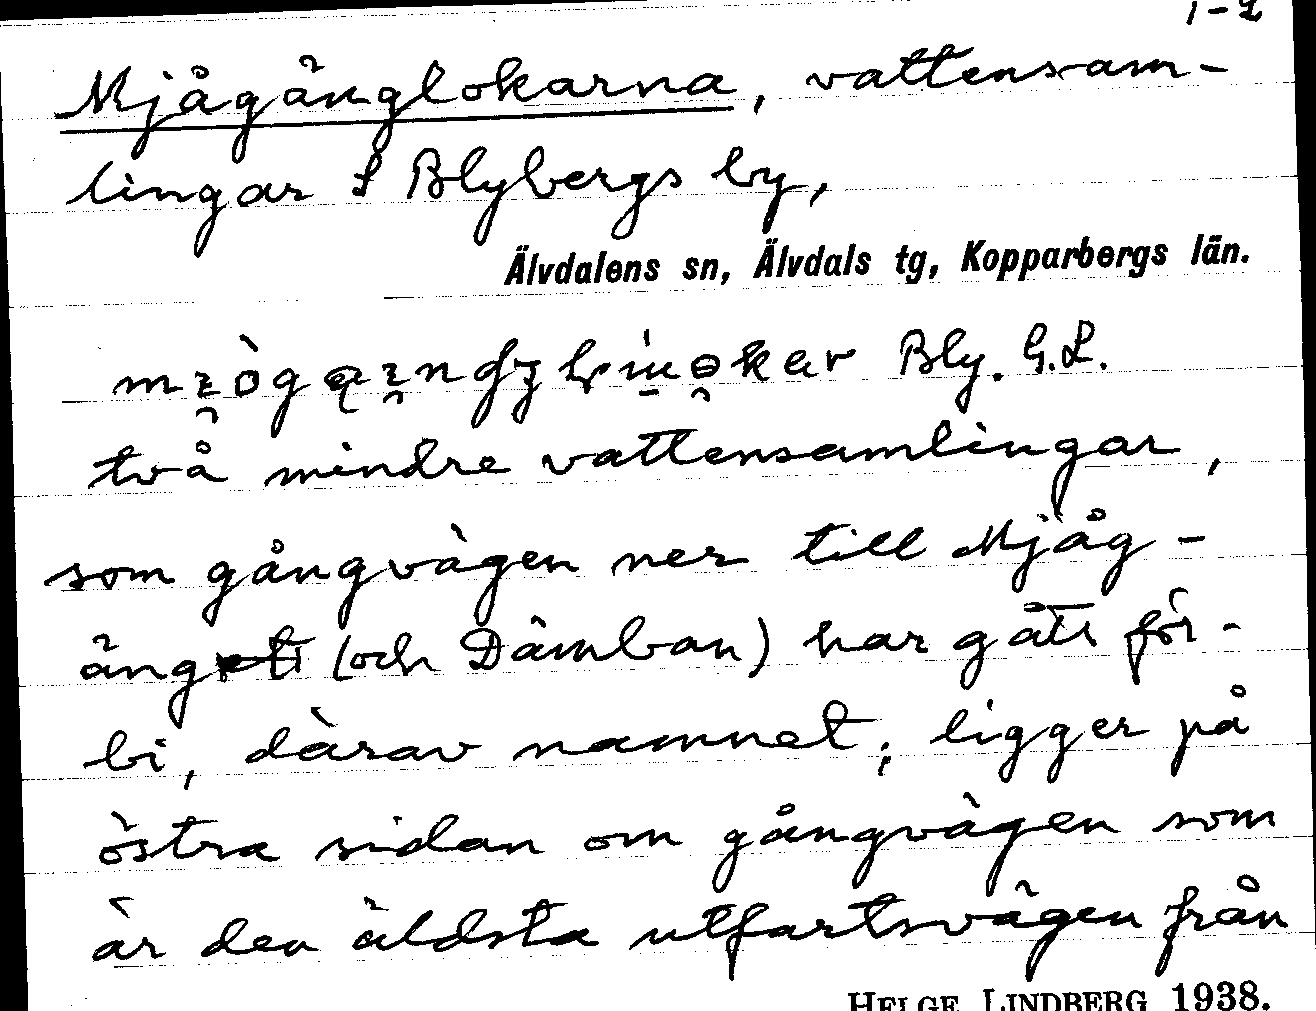 1-2
Mjågänglokarna, vattensam-
lingar S Blybergs by,
Älvdalens sn, Älvdals tg, Kopparbergs län.
Bly. G.L.
två mindre vattensamlingar,
som gångvägen ner till Mjåg-
äng (och Dämban) har gått för-
bi, därav namnet; ligger på
östra sidan om gångvägen som
är den äldsta utfartsvägen från
HELGE LINDBERG 1938.